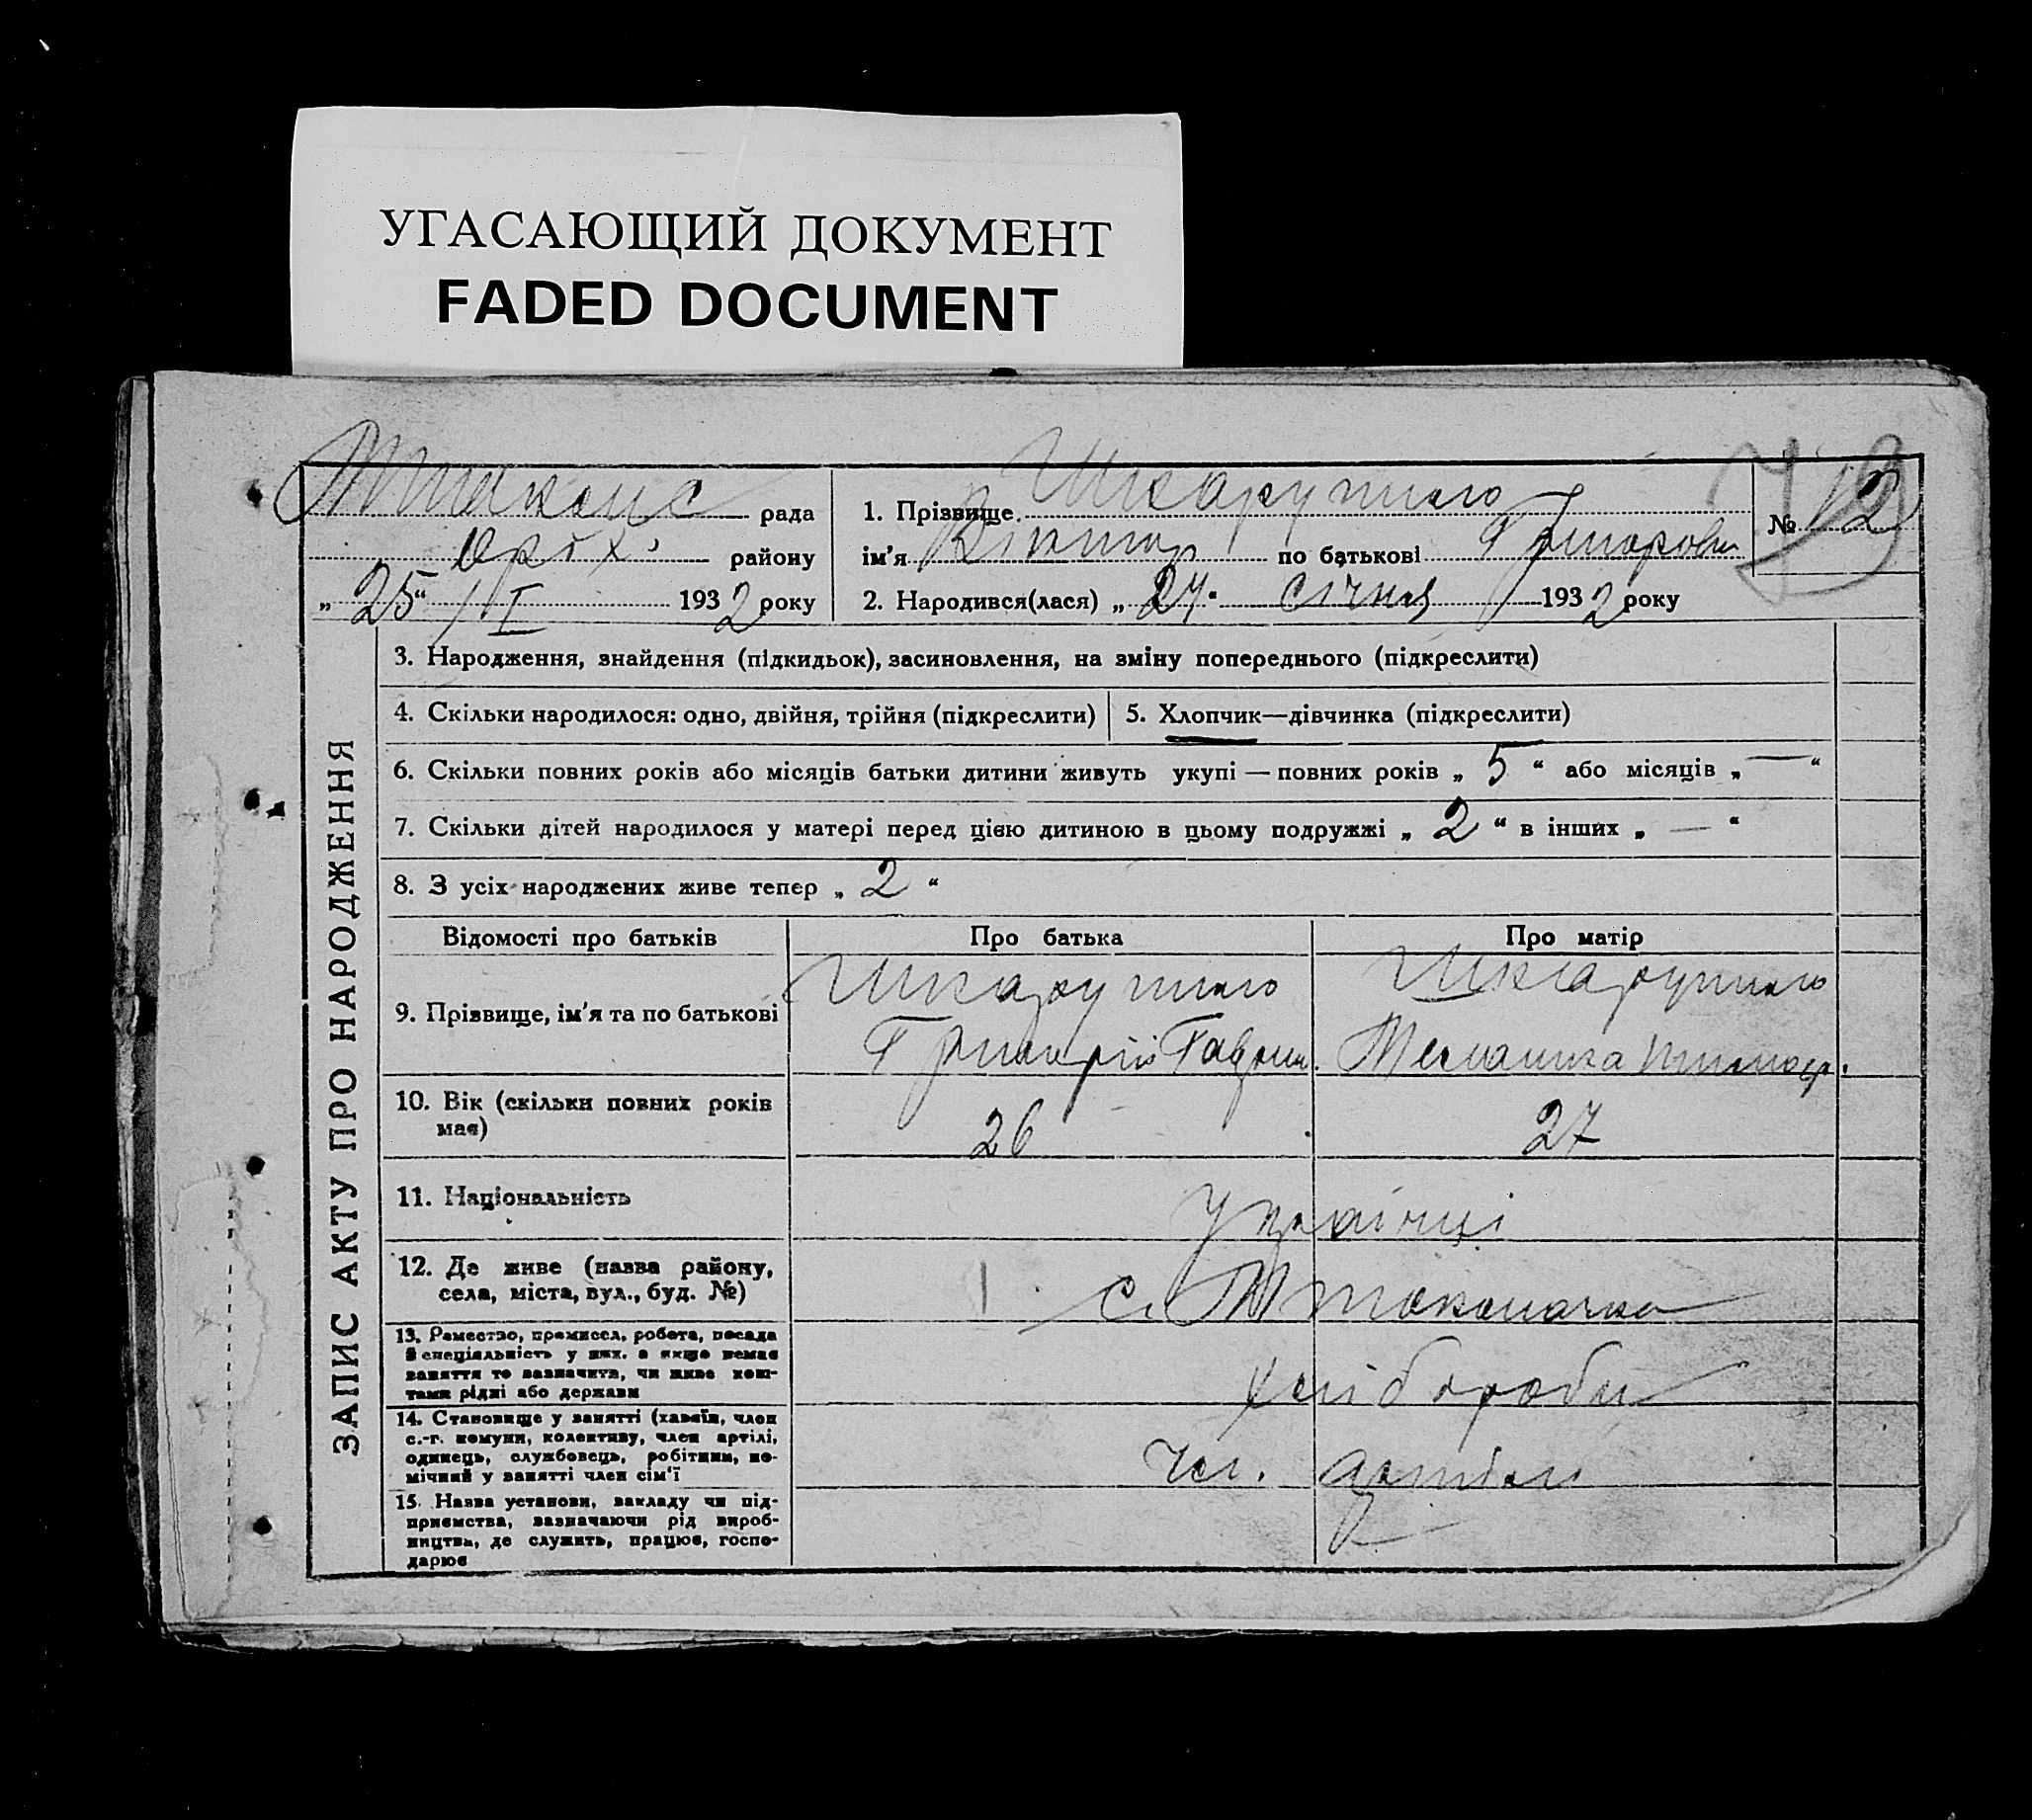 УГАСАЮЩИЙ ДОКУМЕНТ
FADED DOCUMENT
рада
району
„ 25 “ / I 1932 року
1. Прізвище Шкарупило
ім’я Віктор по батькові Григорович
№ 12
2. Народився(лася) „ 24 “ січня 1932 року
ЗАПИС АКТУ ПРО НАРОДЖЕННЯ
3. Народження, знайдення (підкидьок), засиновлення, на зміну попереднього (підкреслити)
4. Скільки народилося: одно, двійня, трійня (підкреслити)
5. Хлопчик—дівчинка (підкреслити)
6. Скільки повних років або місяців батьки дитини живуть укупі — повних років „ 5 “ або місяців „ — “
7. Скільки дітей народилося у матері перед цією дитиною в цьому подружжі „ 2 “ в інших „ — “
8. З усіх народжених живе тепер „ 2 “
Відомості про батьків Про батька Про матір
9. Прізвище, ім’я та по батькові
Шкарупило Шкарупило
Григорій Гаврил.
10. Вік (скільки повних років
має)
26 27
11. Національність
Українці
12. Де живе (назва району,
села, міста, вул., буд. №)
с.
13. Ремество, промисел, робота, посада
й спеціяльність у них, а якщо немає
заняття то зазначити, чи живе кош-
тами рідні або держави
хлібороби
14. Становище у занятті (хазяїн, член
с.-г. комуни, колективу, член артілі,
одинець, службовець, робітник, по-
мічний у занятті член сім’ї
Чл. артілі
15. Назва установи, закладу чи під-
приємства, зазначаючи рід вироб-
ництва, де служить, працює, госпо-
дарює